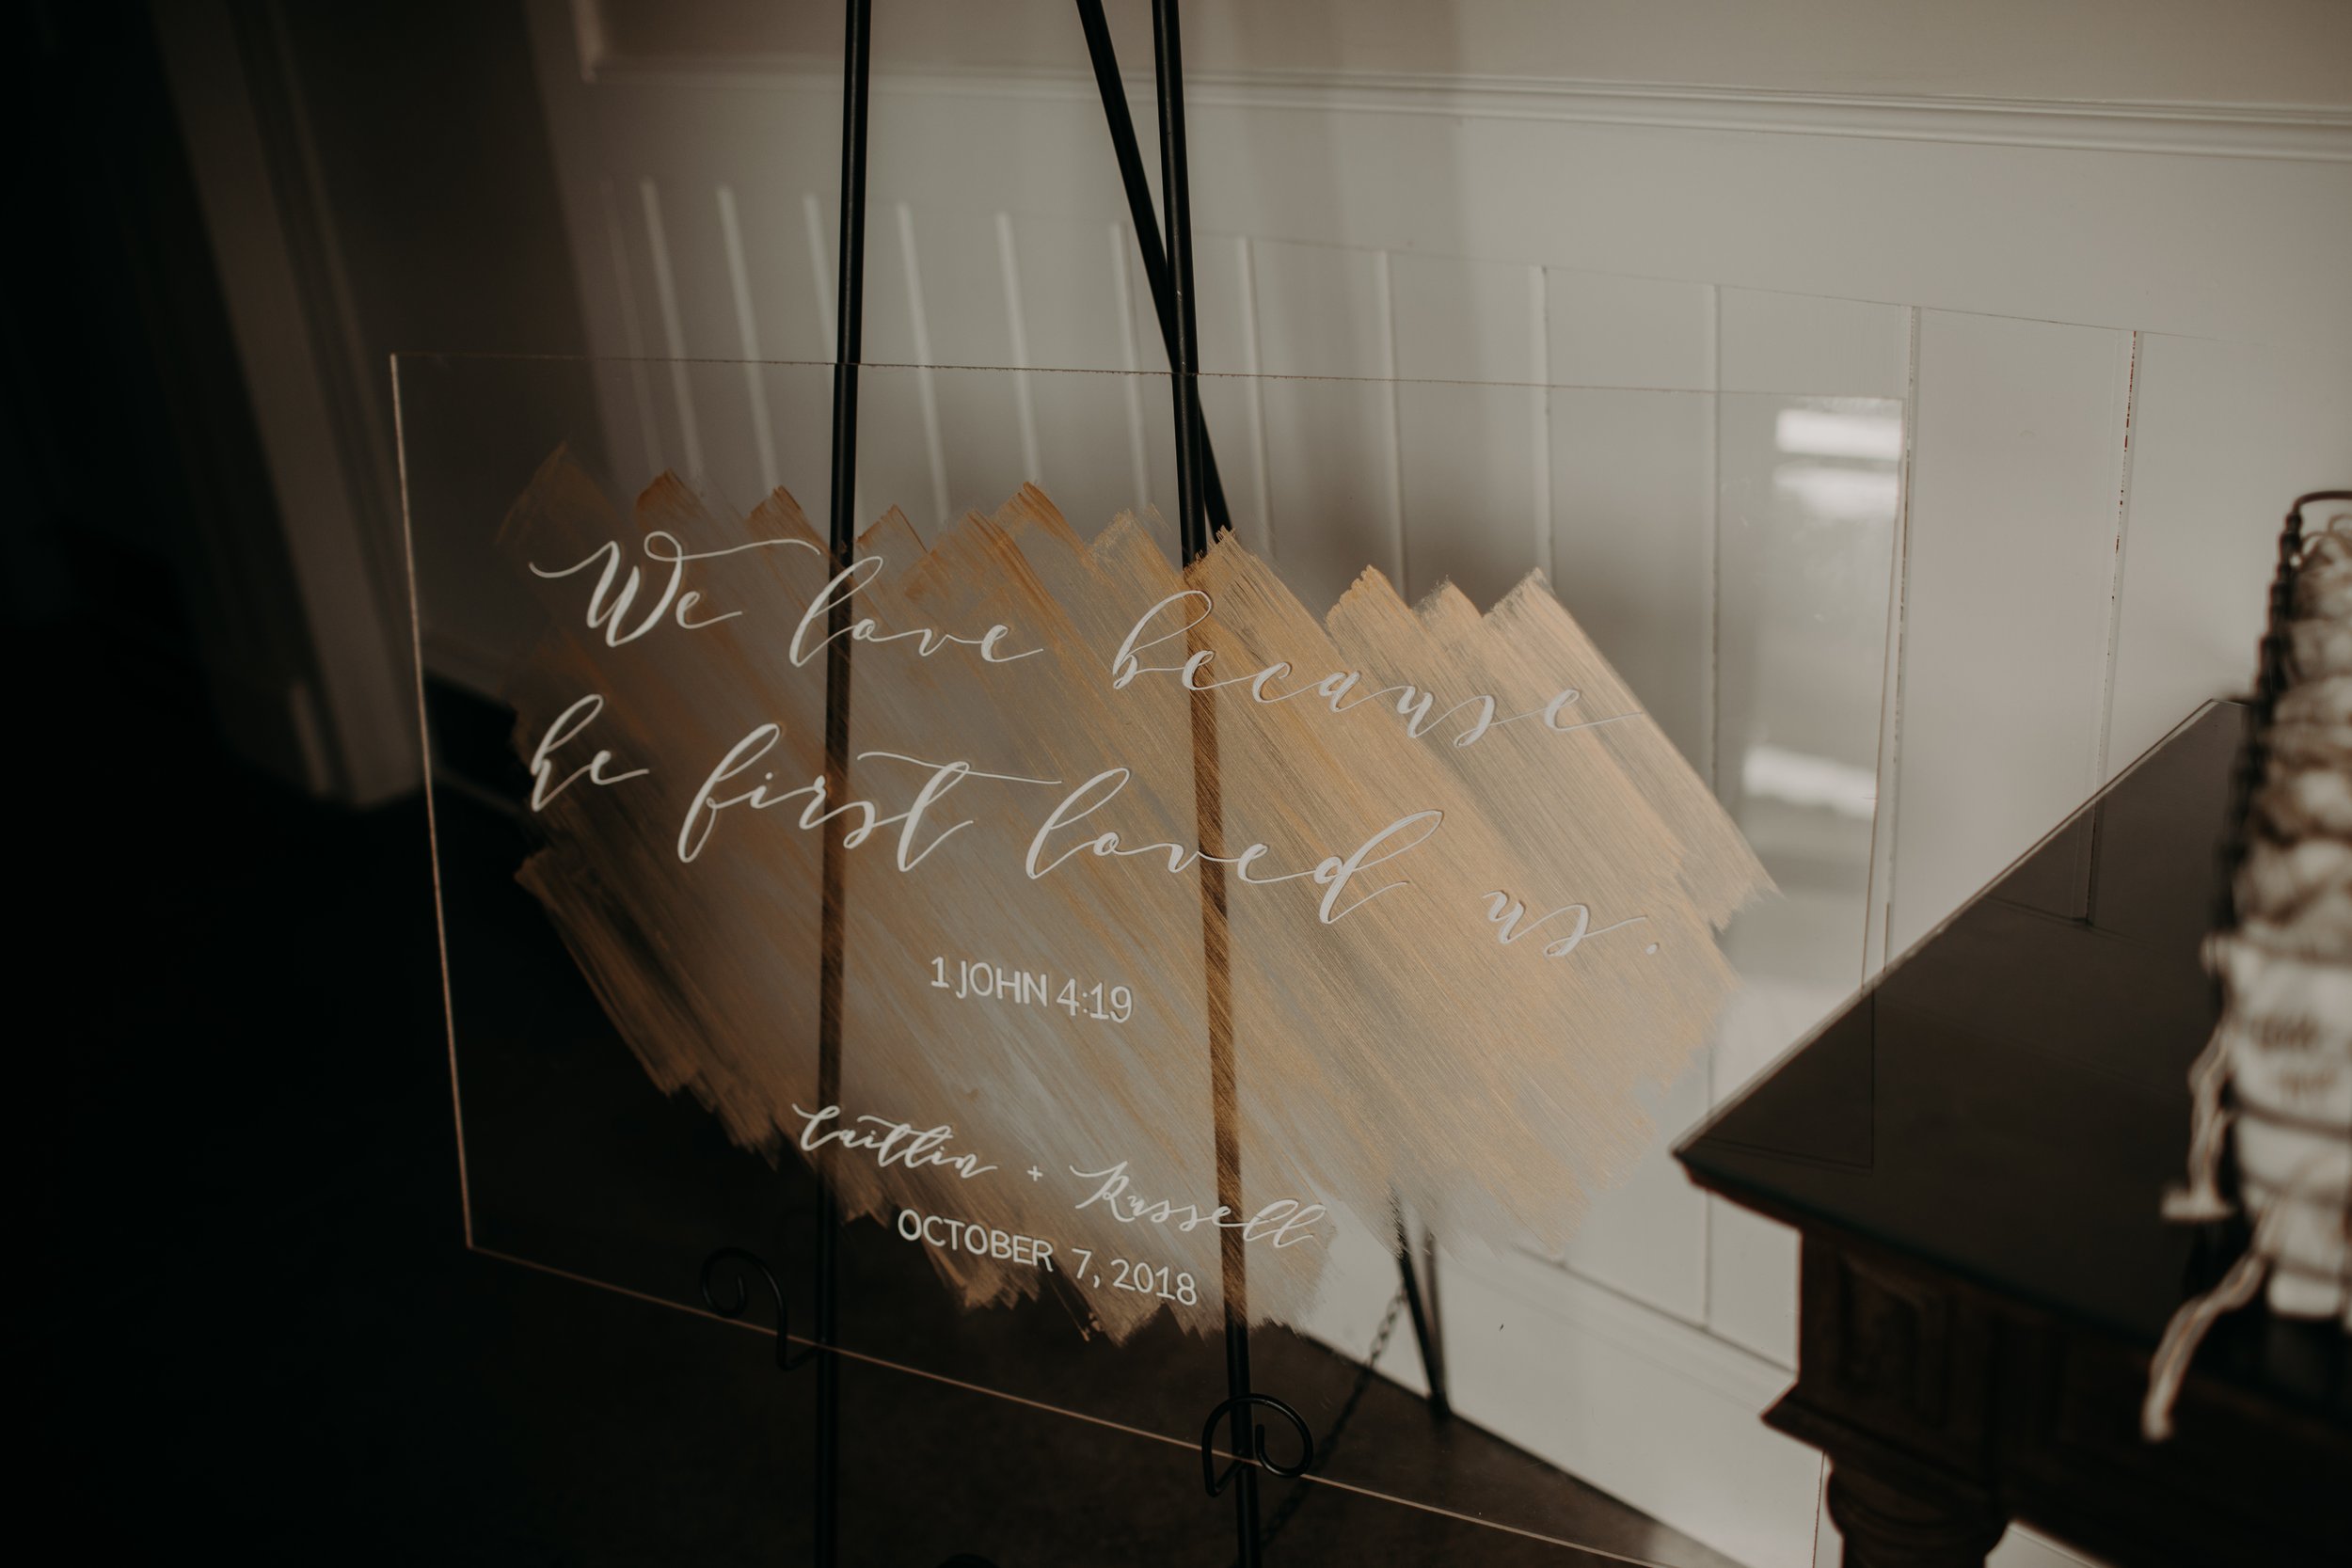 We love because
he first loved us.
1 JOHN 4:19
Caitlin + Russell
OCTOBER 7, 2018